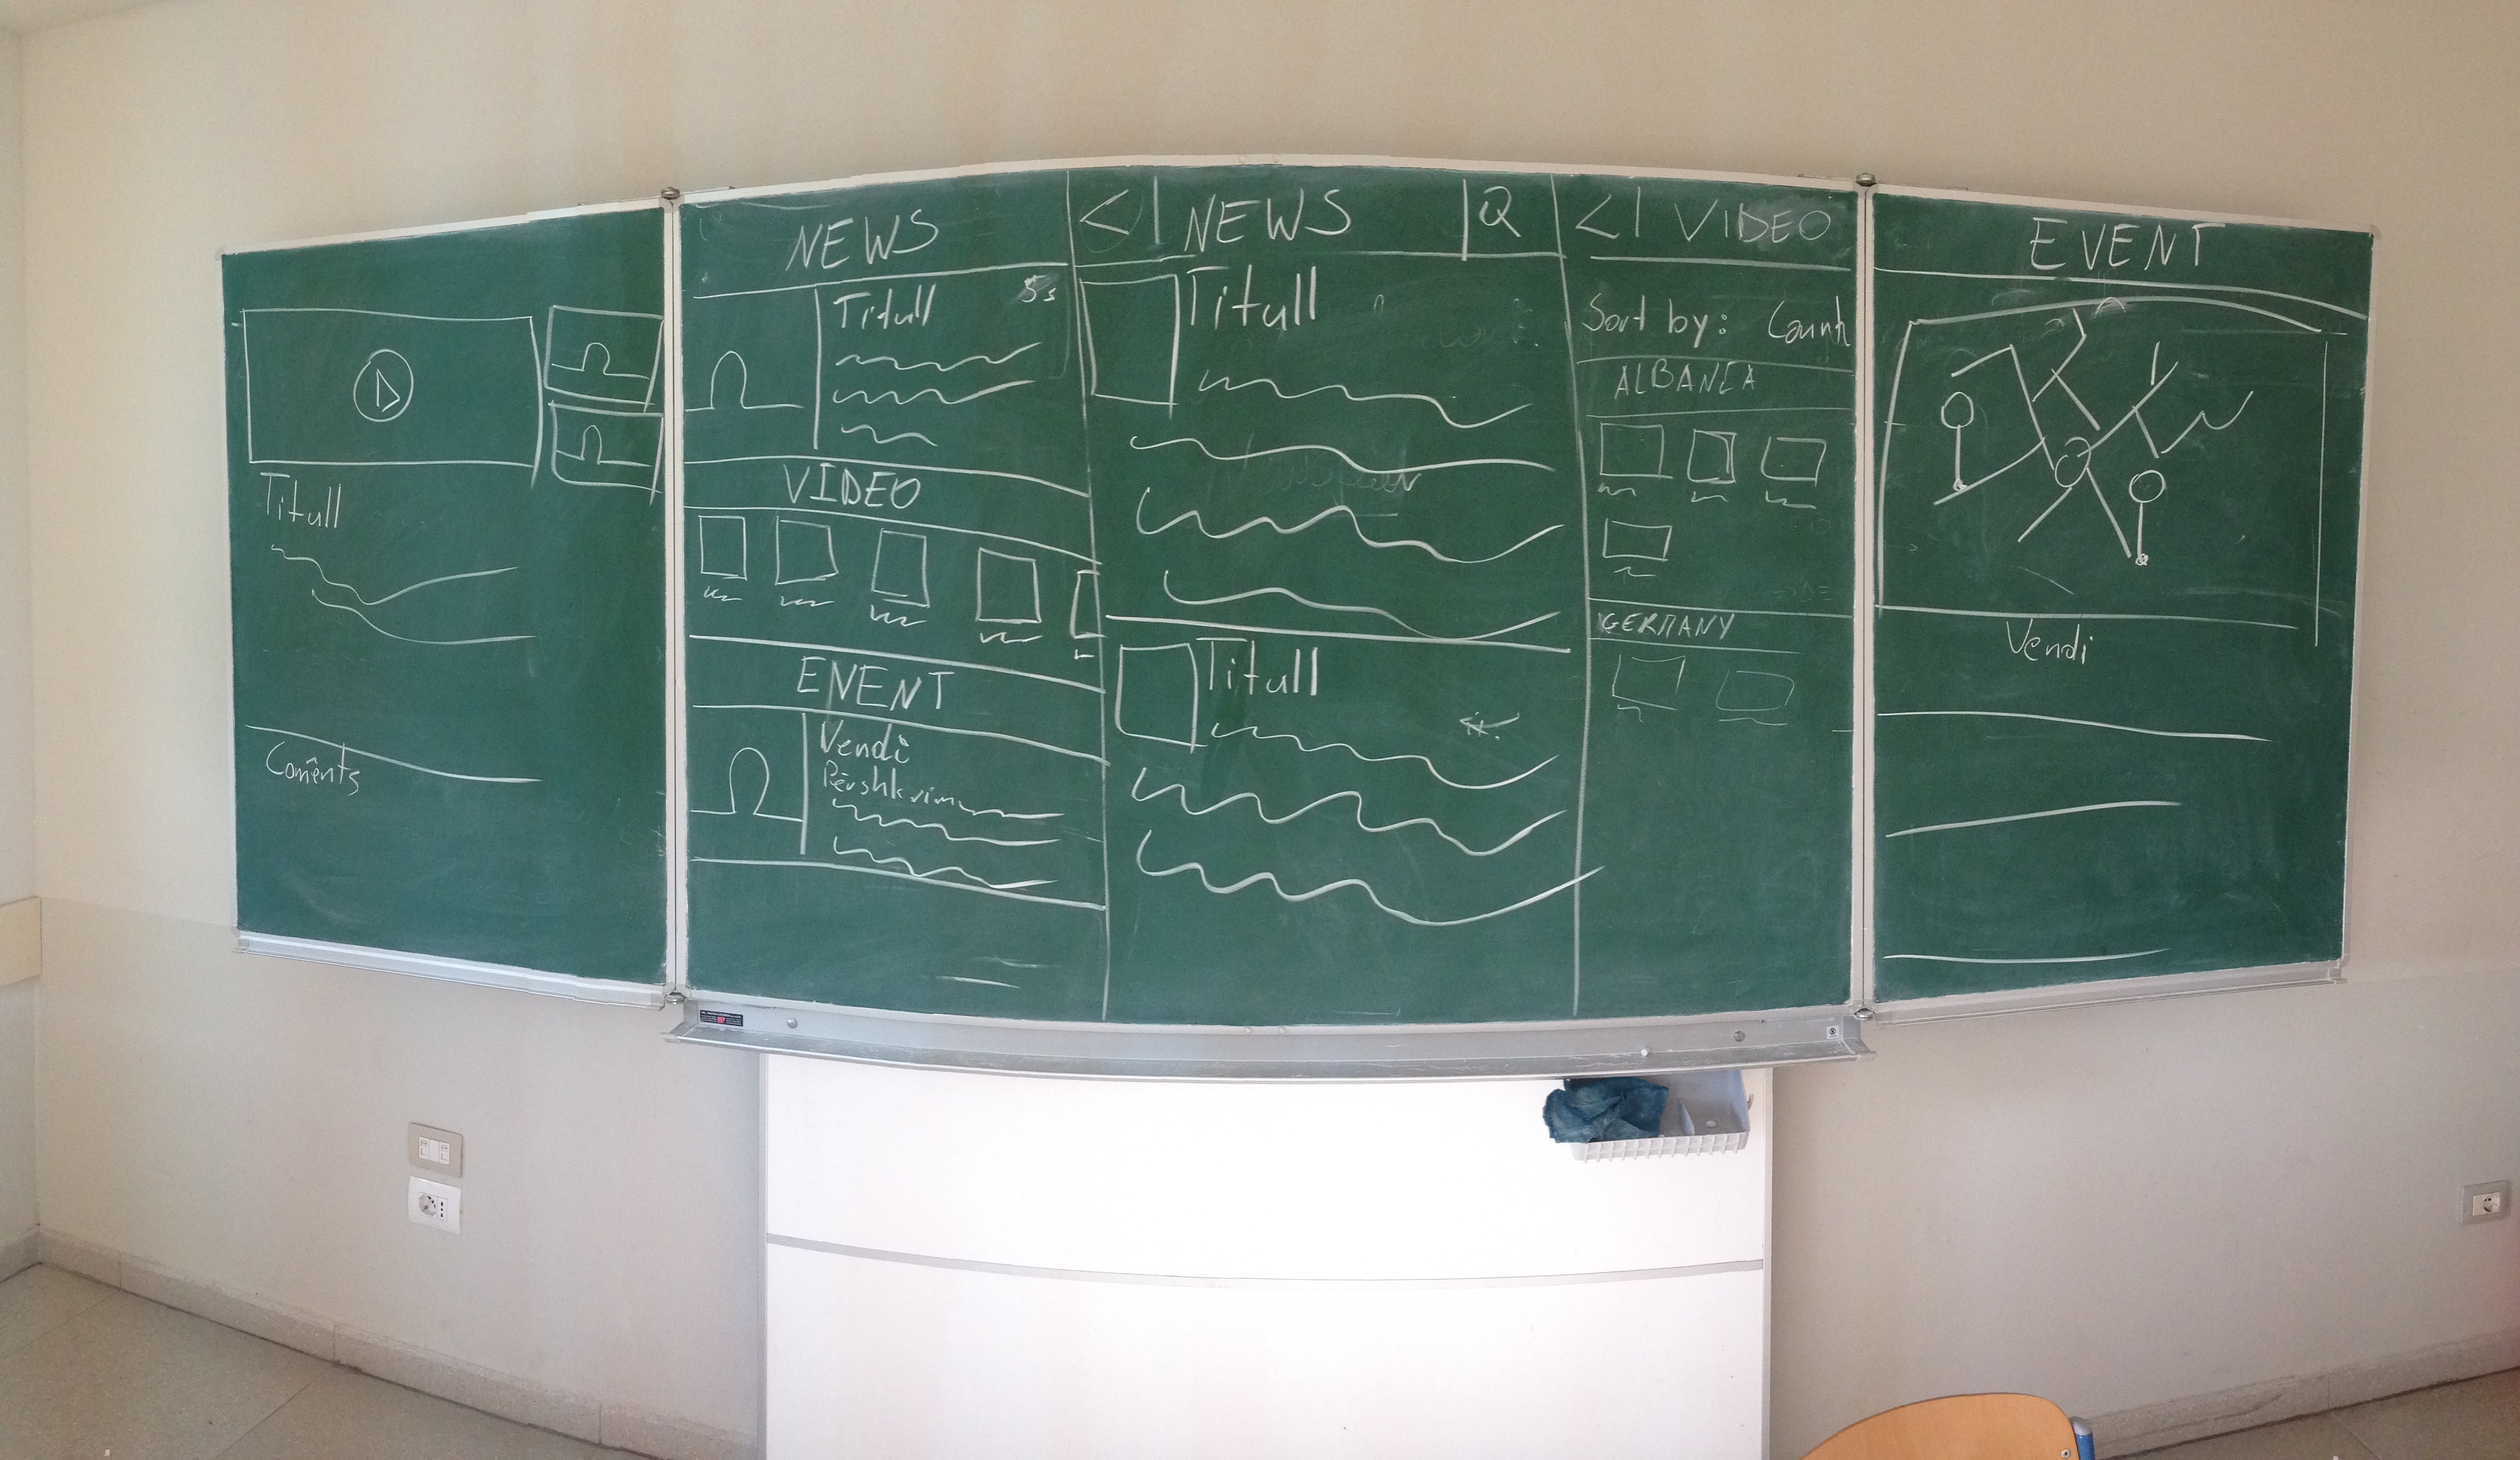 Titull
Coments
NEWS
Titull
5s
VIDEO
ENENT
Vendi
Përshkrim
< NEWS Q
Titull
Titull
< VIDEO
Sort by:
ALBANIA
GERMANY
EVENT
Vendi